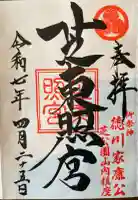 奉拝
御祭神
徳川家康公
芝公園山内鎮座
芝東照宮
照宮
令和七年四月二十五日